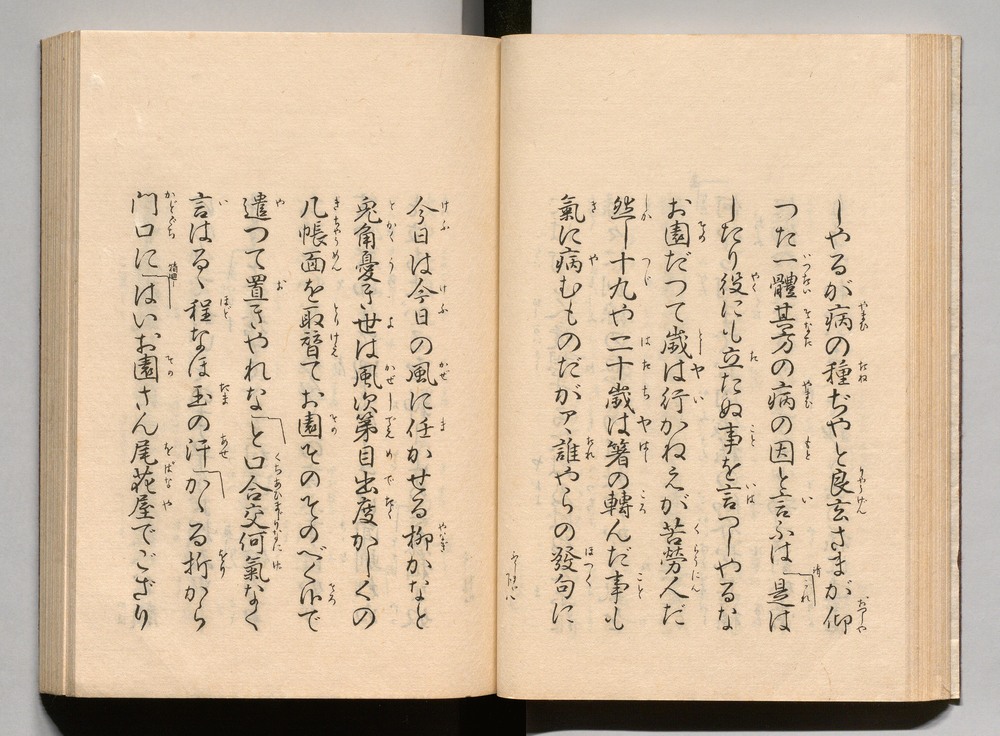 しやるが病の種ぢやと良玄さまが仰
つた一體其方の病の因と言ふは是は
したり役にも立たぬ事を言つしやるな
お園だつて歳は行かねえが苦勞人だ
然し十九や二十歳は箸の轉んだ事も
氣に病むものだがア、誰やらの發句に
今日は今日の風に任かせる柳かなと
兎角憂き世は風次第目出度かしくの
几帳面を取替てお園そのそのべくれで
遣つて置きやれなと口合交何氣なく
言はるゝ程なほ玉の汗かゝる折から
門口にはいお園さん尾花屋でござり